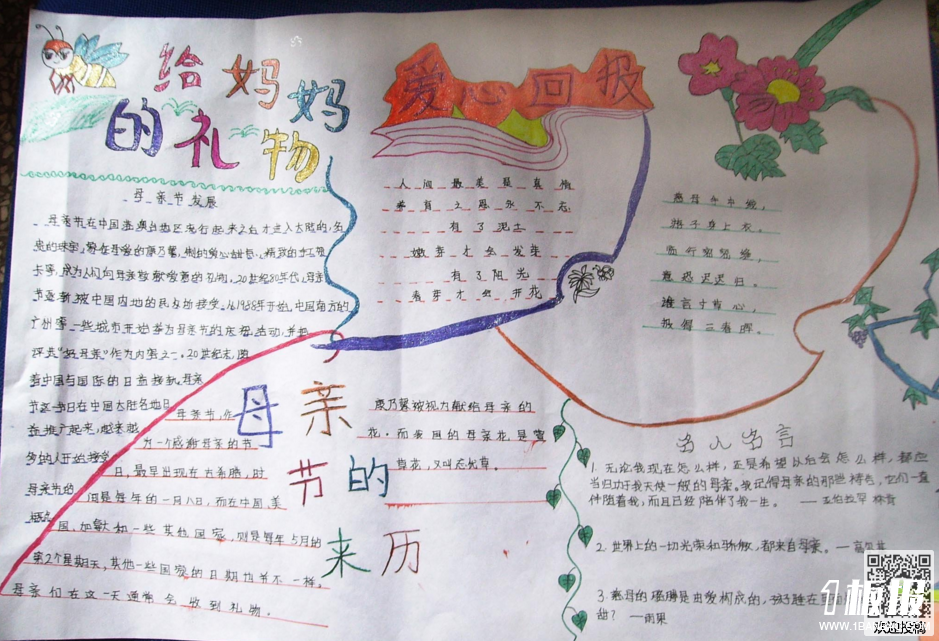 给妈妈
的礼物
母亲节发展
母亲节在中国港澳台地区流行起来之后才进入大陆的,名
贵的珠宝,象征母爱的康乃馨,制的爱心甜点,精致的手工贺
卡等,成为人们向母亲致献敬意的
20世纪80年代,母亲
节逐渐被中国内地的民众所接受。从1988年开始,中国南方的
广州等一些城市开始举办母亲节的庆祝活动,并把
评选“好母亲”作为内容之一。20世纪末,随
着中国与国际的日益接轨,母亲
节这一节日在中国大陆各地日
益推广起来,越来越
多的人开始接受
母亲节的
母亲节,作
为一个感谢母亲的节
日,最早出现在古希腊,时
间是每年的一月八日,而在中国、美
国、加拿大和一些其他国家,则是每年5月的
第2个星期天,其他一些国家的日期也并不一样。
母亲们在这一天通常会收到礼物。
爱心回报
人间最美是真情
养育之恩永不忘
有了泥土
嫩芽才会发芽
有了阳光
春芽才会开花
慈母手中线,
游子身上衣。
临行密密缝,
意恐迟迟归。
谁言寸草心,
报得三春晖。
母亲
节的
来历
康乃馨被视为献给母亲的
花。而我国的母亲花是萱
草花,又叫忘忧草。
名人名言
1. 无论我现在怎么样,还是希望以后会怎么样,都应
当归功于我天使一般的母亲。我记得母亲的那些祷告,它们一直
伴随着我,而且已经陪伴了我一生。—亚伯拉罕·林肯
2. 世界上的一切光荣和骄傲,都来自母亲。—高尔基
3. 慈母的胳膊是由爱构成的,孩子睡在里
甜? —雨果
1板报
WWW.1BANBAO.COM
欢迎投稿